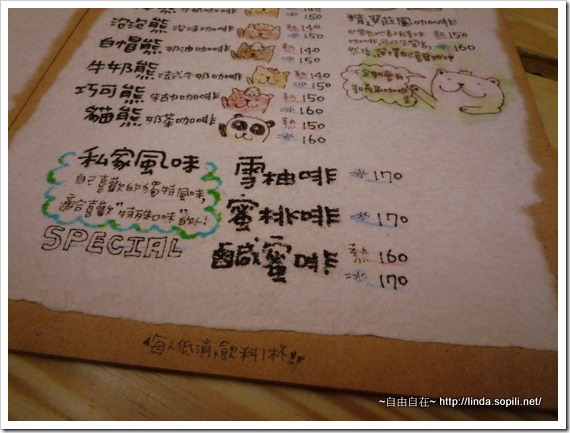 150
泡泡熊 漂味咖啡 熱 140
冰 150
白帽熊 奶油咖啡 熱 140
冰 150
牛奶熊 法式牛奶咖啡 熱 140
冰 150
巧可熊 摩卡咖啡 熱 150
冰 160
貓熊 奶茶咖啡 熱 150
冰 160
精選莊園咖啡
熱 150
冰 160
私家風味
自己喜歡的獨特風味,
適合喜歡"特殊口味"的人!
SPECIAL
雪柚啡 冰 170
蜜桃啡 冰 170
鹹蜜啡 熱 160
冰 170
每人低消,飲料1杯
~自由自在~ http://linda.sopili.net/